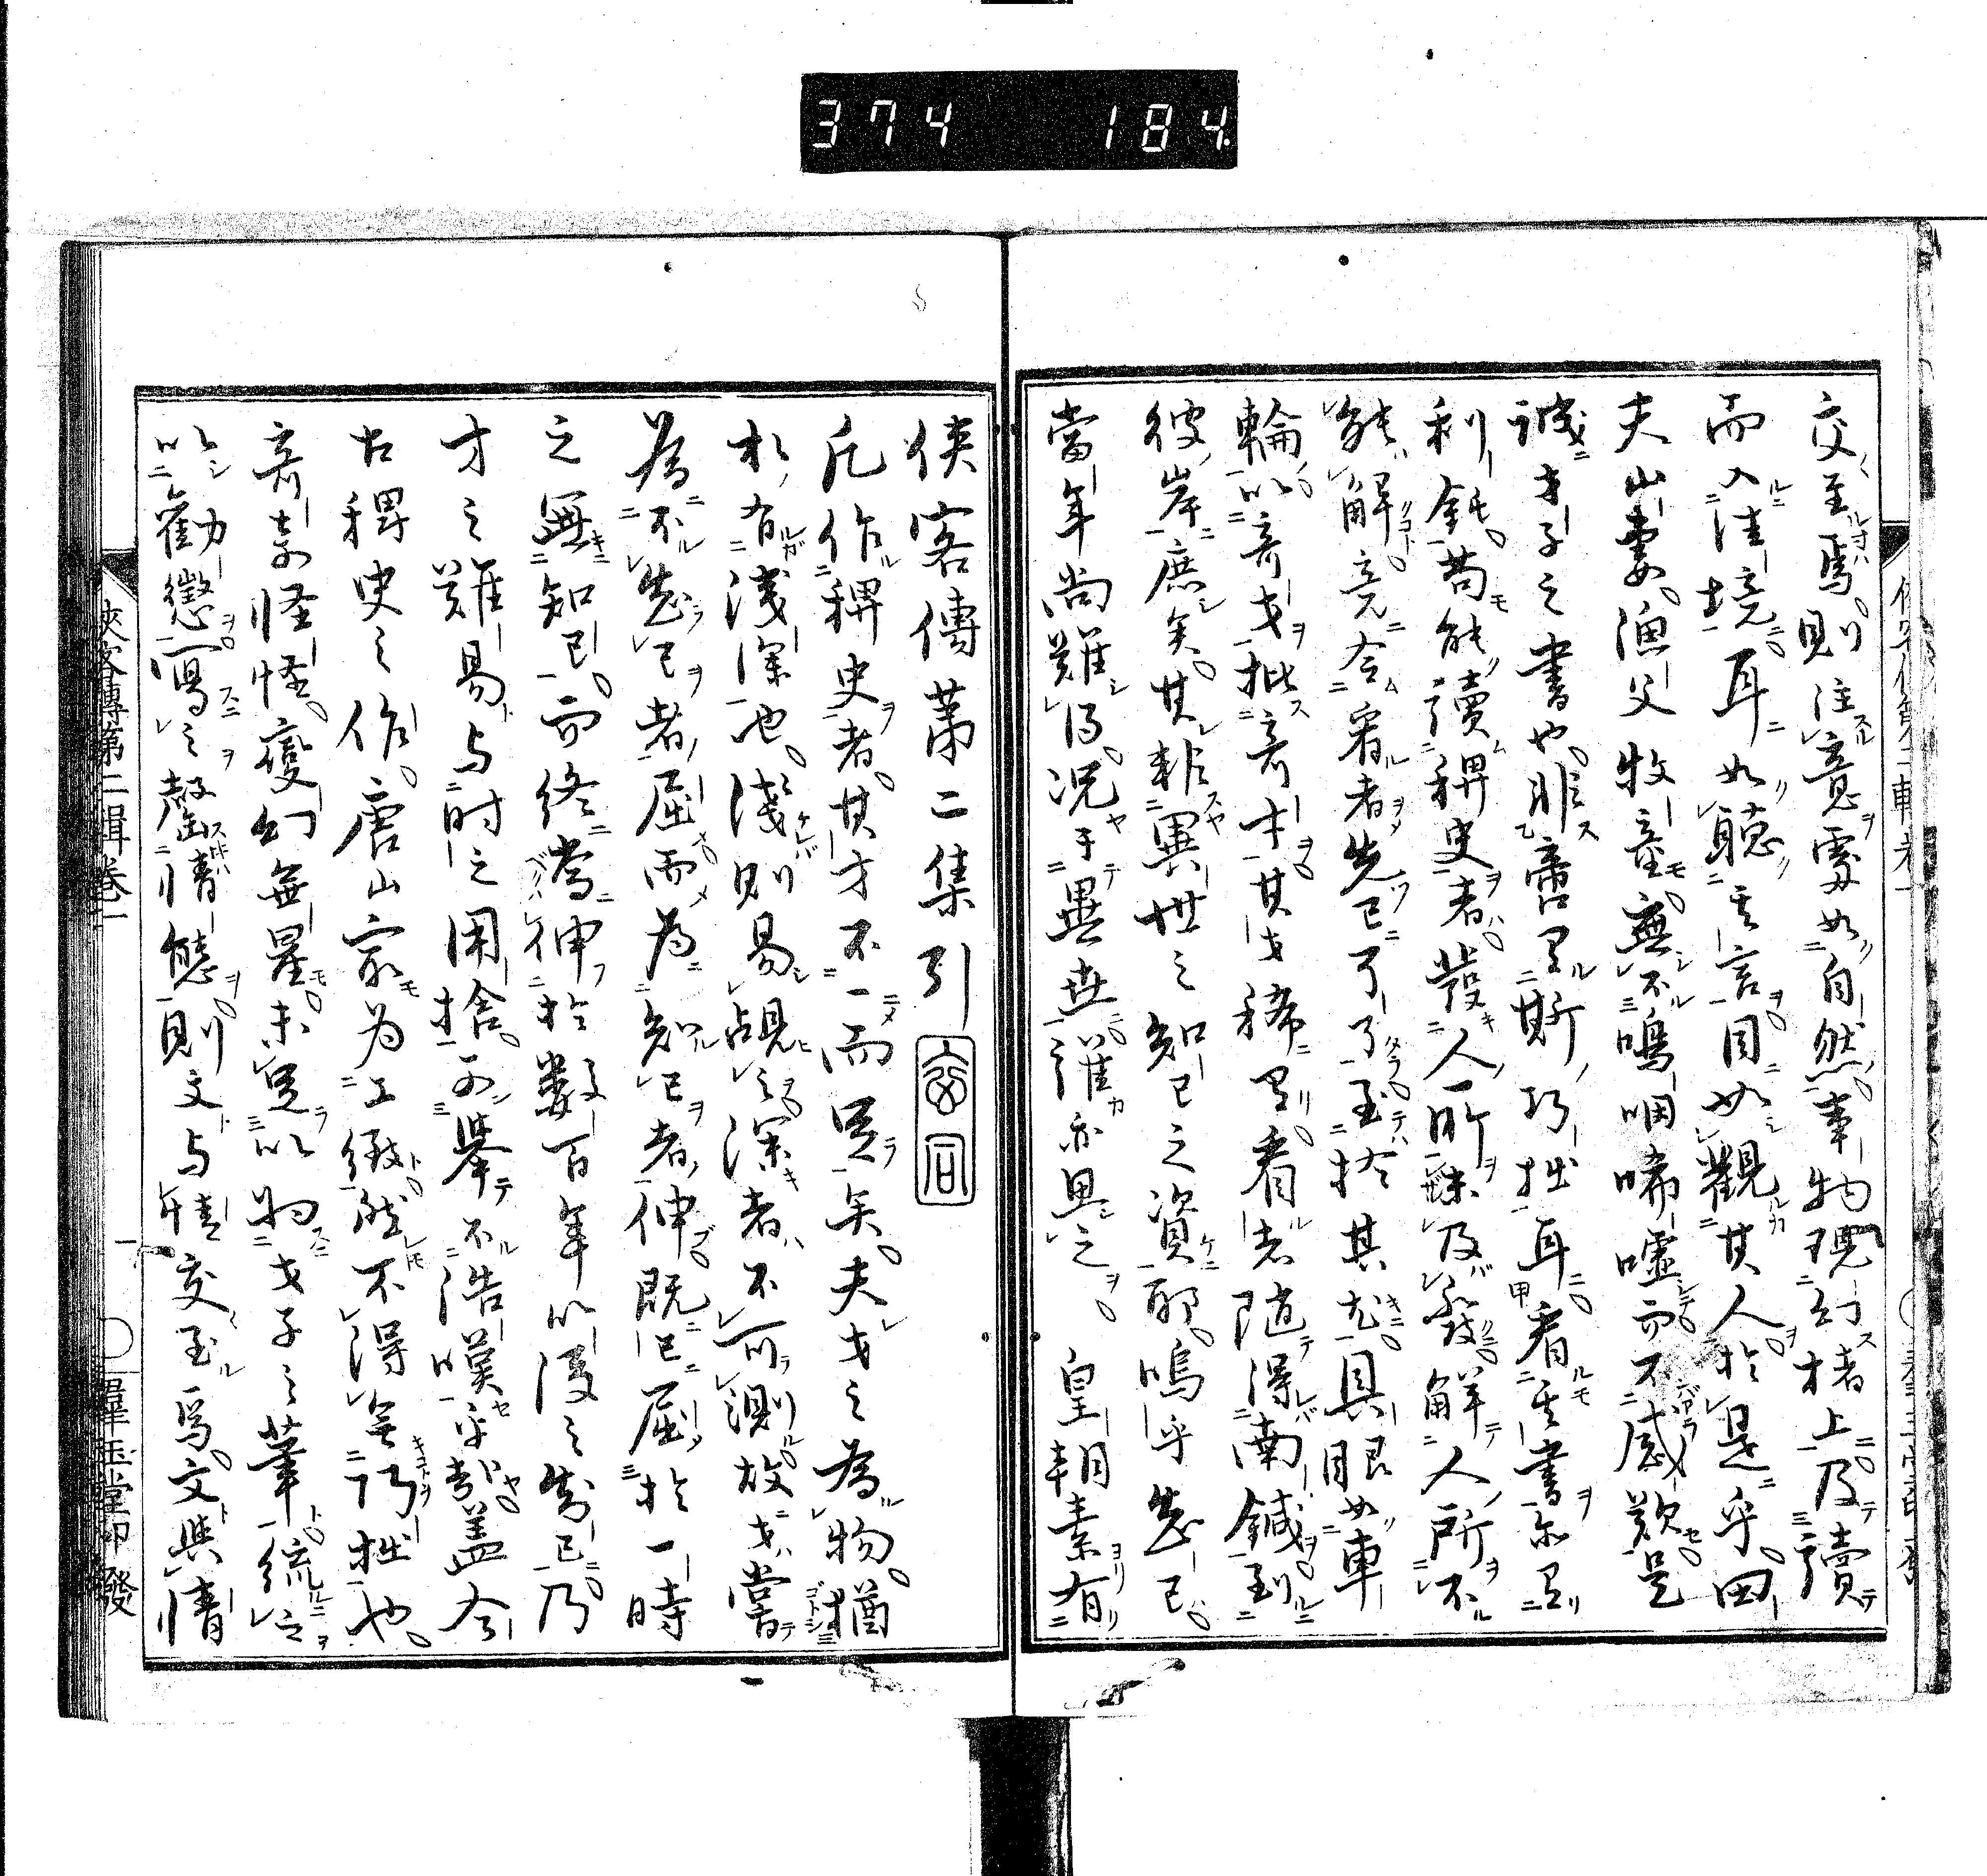 侠客傳第二集引
凡作稗史者。其才不一而足矣。夫才之為物。猶
水有淺深也。淺則易覘之深者不可測故才嘗
為不知己者屈而為知己者伸既已屈於一時
之無知己。而終當伸於數百年以後之知己乃
才之難易与時之用捨。可舉不浩嘆乎哉蓋今
古稗史之作。唐山家為工緻然不得無巧拙也。
奇奇怪怪。變幻無量未足以物才子之筆統之
以勸懲寫之罄情態則文与情交至焉。文與情
侠客傳第二輯巻一 一 羣玉堂印發
交至焉。則注意處如自然。事物現幻楮上及讀
而入佳境耳如聽其言目如觀其人於是乎。田
夫山妻。漁父牧童無不嗚咽唏噓而不感歎是
誠才子之書也。非啻有斯巧拙耳看其書亦有
利鈍苟能讀稗史者發人所秘及發解人所不
能解竟令看者先已了了至於其尤具眼如車
輪以奇才批奇才其才稀有看者隨得南鍼到
彼岸庶矣。其非異世之知己之資耶。嗚乎知己。
當年尚難得。况于異世誰亦思之。皇朝素有
374 184